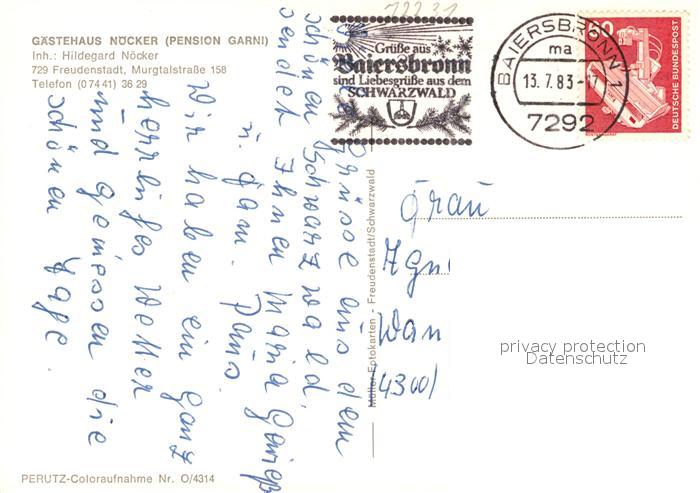 GÄSTEHAUS NÖCKER (PENSION GARNI)
Inh.: Hildegard Nöcker
729 Freudenstadt, Murgtalstraße 158
Telefon (0 74 41) 36 29
Grüße aus
Baiersbronn
sind Liebesgrüße aus dem
SCHWARZWALD
BAIERSBRONN 1
ma
13.7.83-17
7292
DEUTSCHE BUNDESPOST
Grüsse aus dem
schönen Schwarzwald
sendet Ihnen Maria
u. Fam.
Wir haben ein ganz
herrliches Wetter
und geniessen die
schönen Tage.
Müller Fotokarten - Freudenstadt/Schwarzwald
Frau
Agn
Wan
4300
privacy protection
Datenschutz
PERUTZ-Coloraufnahme Nr. O/4314